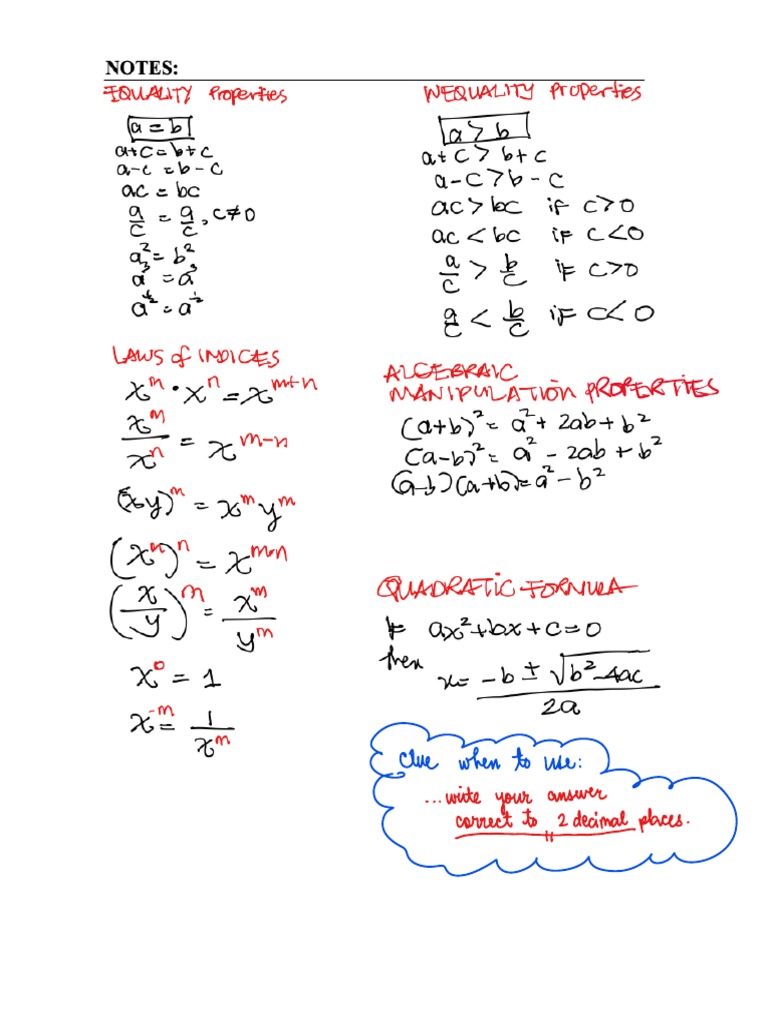 NOTES:
EQUALITY Properties
a = b
a+c=b+c
a-c=b-c
ac = bc
a/c = a/c, c≠0
a² = b²
a³ = a³
a^½ = a^½
INEQUALITY Properties
a > b
a+c > b+c
a-c > b-c
ac > bc if c>0
ac < bc if c<0
a/c > b/c if c>0
a/c < b/c if c<0
LAWS of INDICES
x^m · x^n = x^(m+n)
x^m/x^n = x^(m-n)
(xy)^m = x^m y^m
(x^n)^n = x^(m·n)
(x/y)^m = x^m/y^m
x^0 = 1
x^-m = 1/x^m
ALGEBRAIC
MANIPULATION PROPERTIES
(a+b)² = a² + 2ab + b²
(a-b)² = a² - 2ab + b²
(a-b)(a+b) = a² - b²
QUADRATIC FORMULA
If ax²+bx+c=0
then x = (-b ± √(b²-4ac))/2a
Clue when to use:
...write your answer
correct to 2 decimal places.